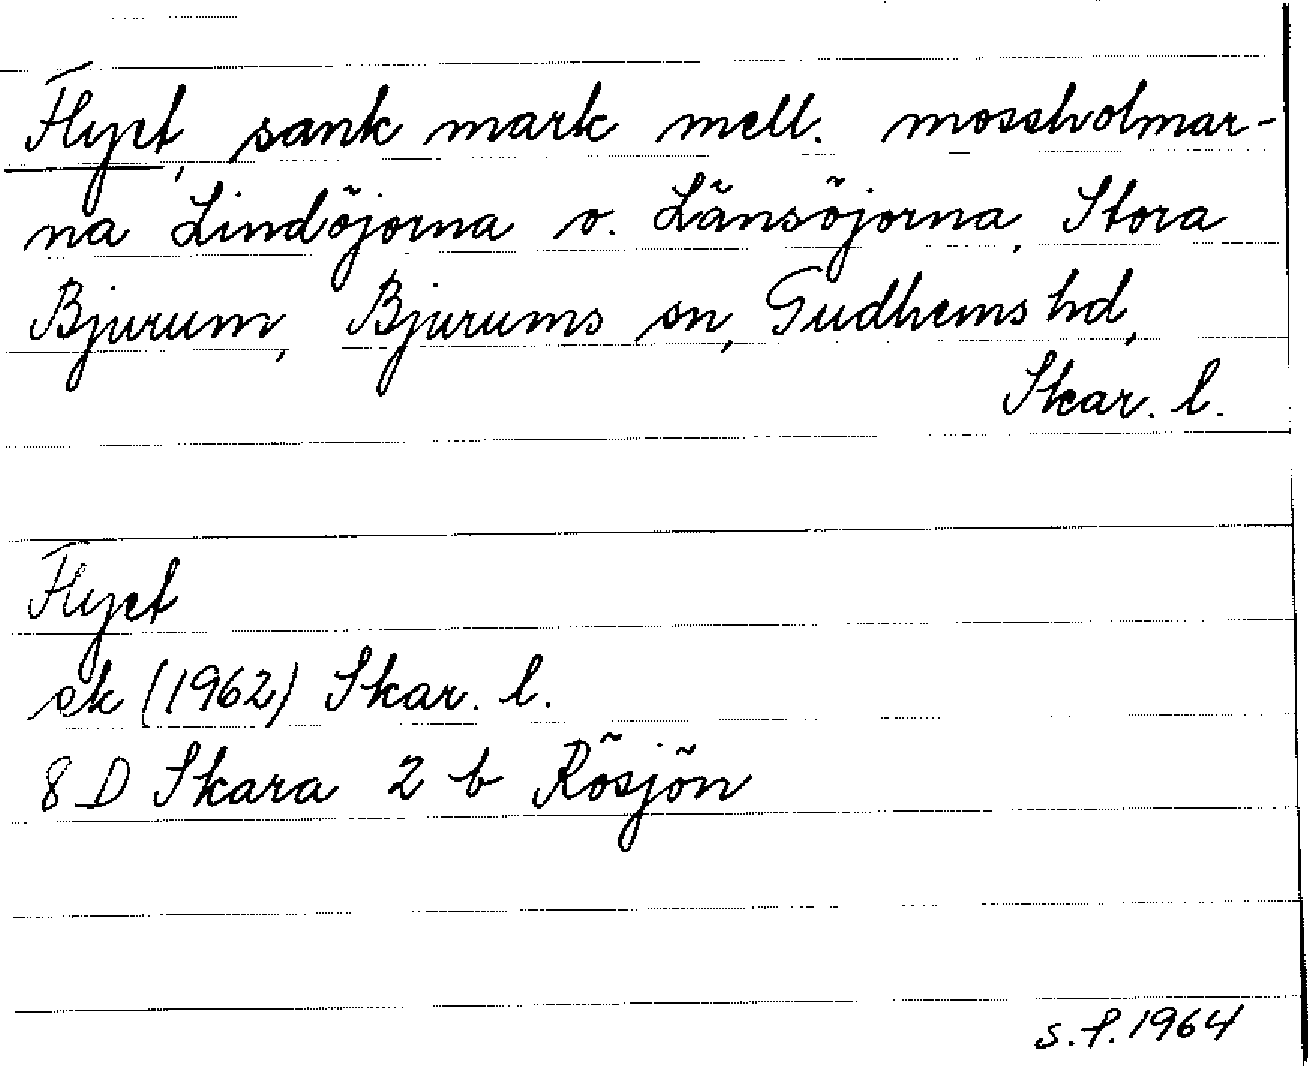 Flyet, sank mark mell. mossholmar-
na Lindöjorna o. Länsöjorna, Stora
Bjurum, Bjurums sn, Gudhems hd,
Skar. l.
Flyet
ek (1962) Skar. l.
8 D Skara 2 b Rösjön
s.f. 1964